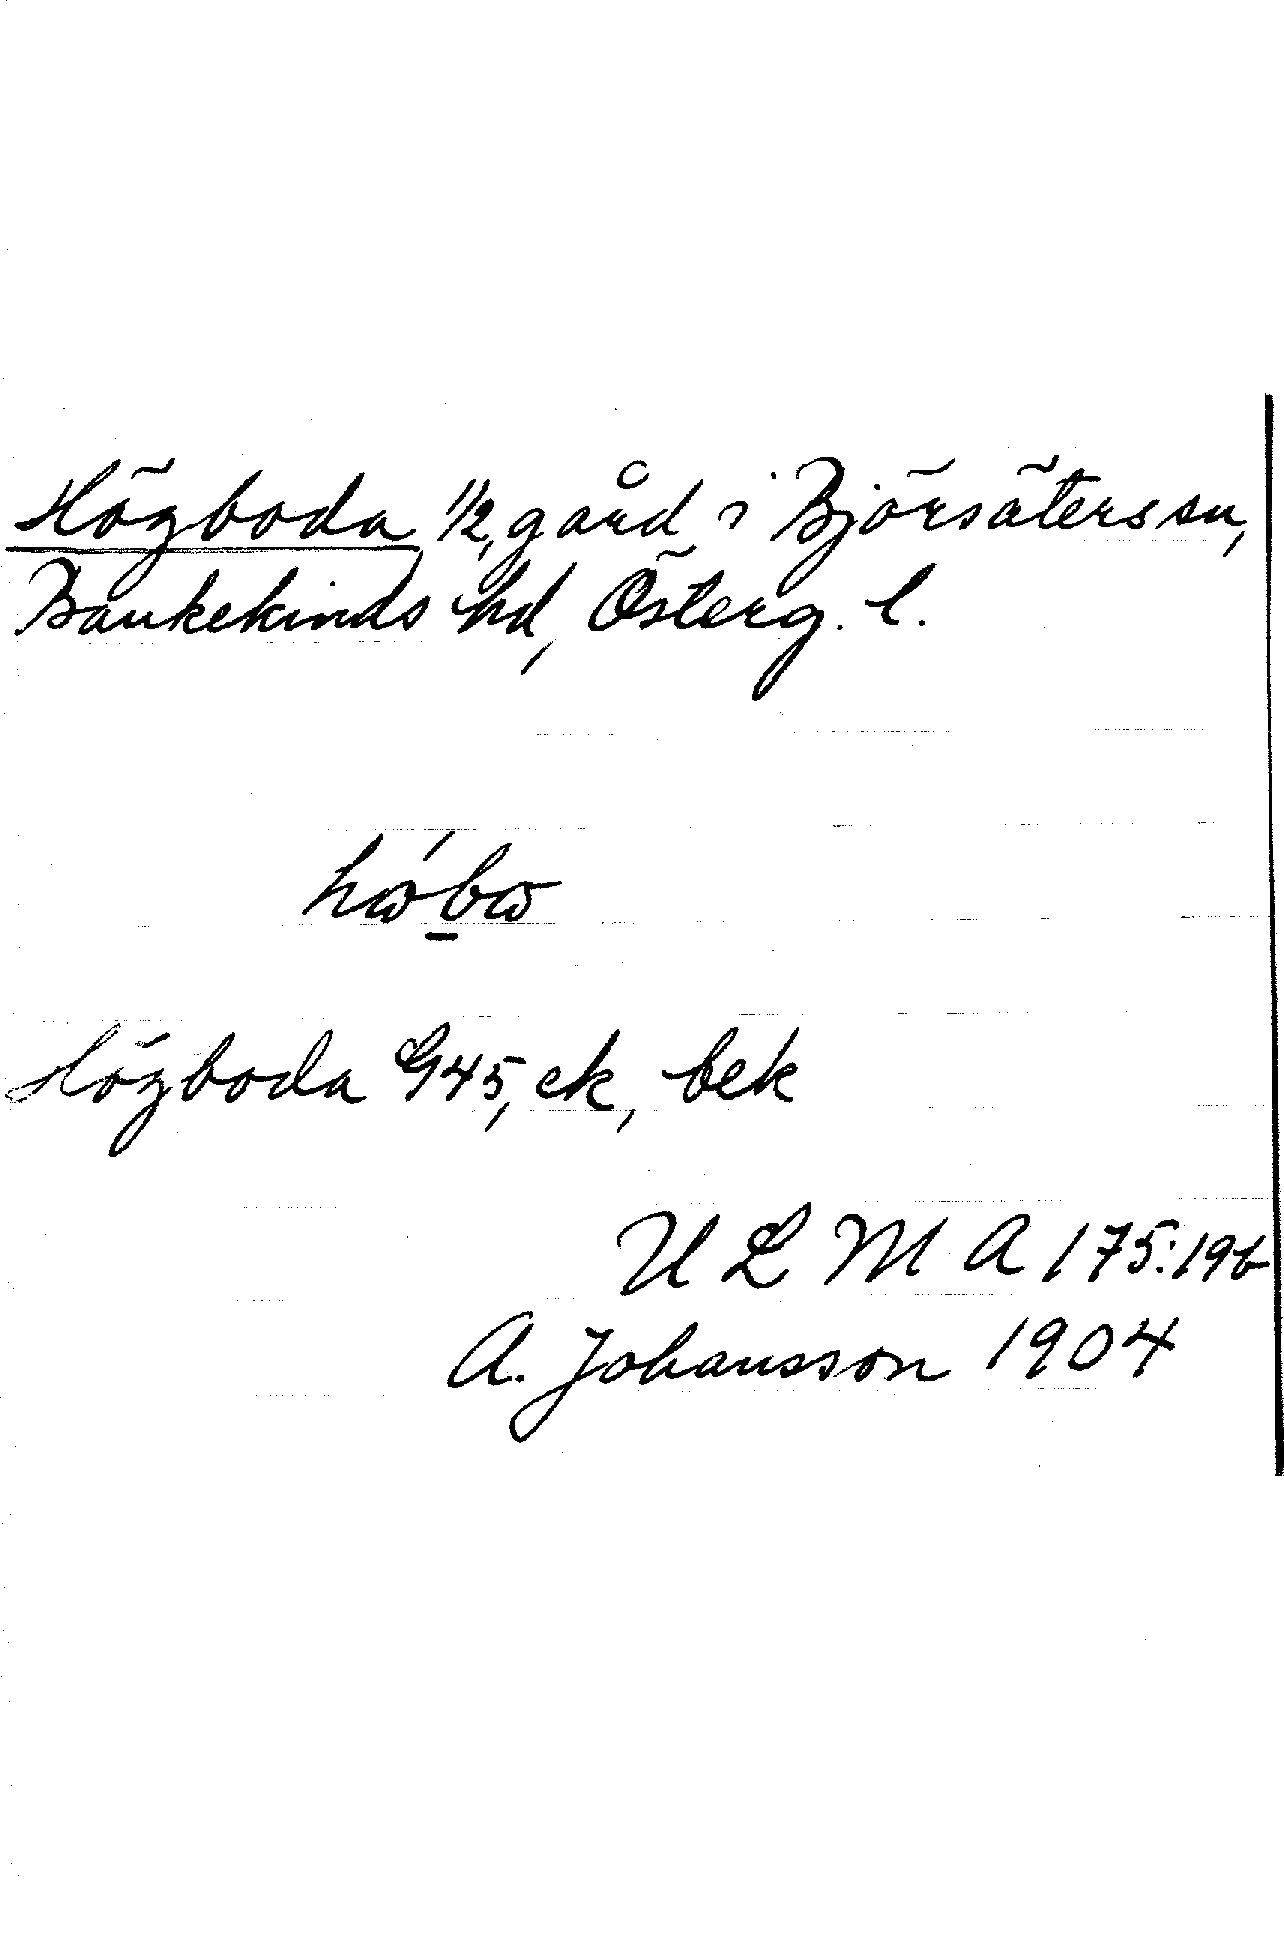 Högboda 1/2, gård i Björsäters sn,
Bankekinds hd, Österg. l.
Högboda G45, ek, bek
U L M A 175:19b
A. Johansson 1904